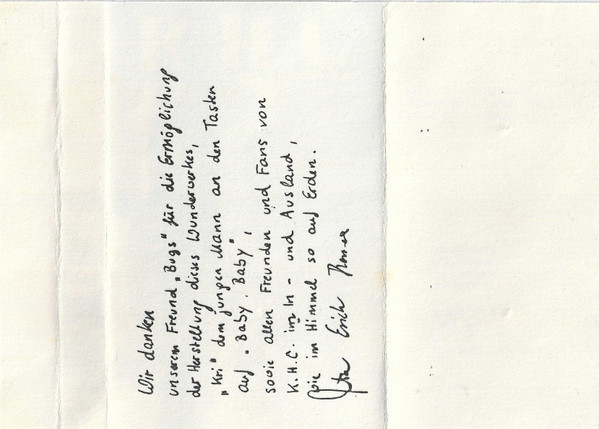 Wir danken
unserem Freund „Bugs“ für die Ermöglichung
der Herstellung dieses Wunderwerkes,
„Kri“ dem jungen Mann an den Tasten
auf „Baby, Baby“,
sowie allen Freunden und Fans von
K.H.C. im In- und Ausland,
wie im Himmel so auf Erden.
Erich